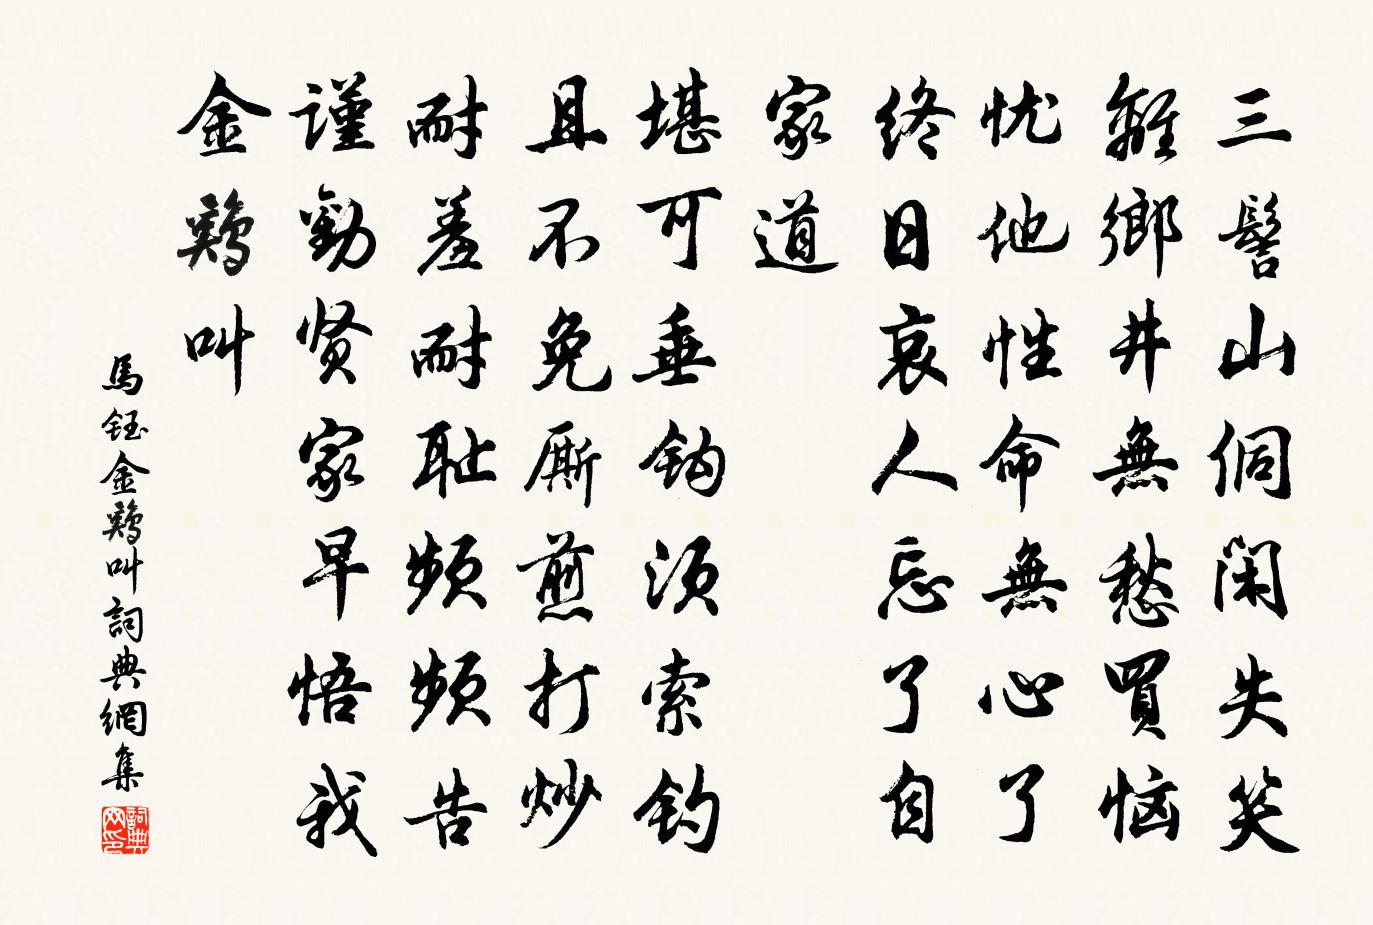 三髻山侗闲失笑
離鄉井無愁買恼
忧他性命無心了
终日哀人忘了自
家道
堪可垂钩须索钓
且不免厮煎打炒
耐羞耐耻频频告
謹勸贤家早悟我
金鷄叫
馬钰金鷄叫詞典網集
詞典网印